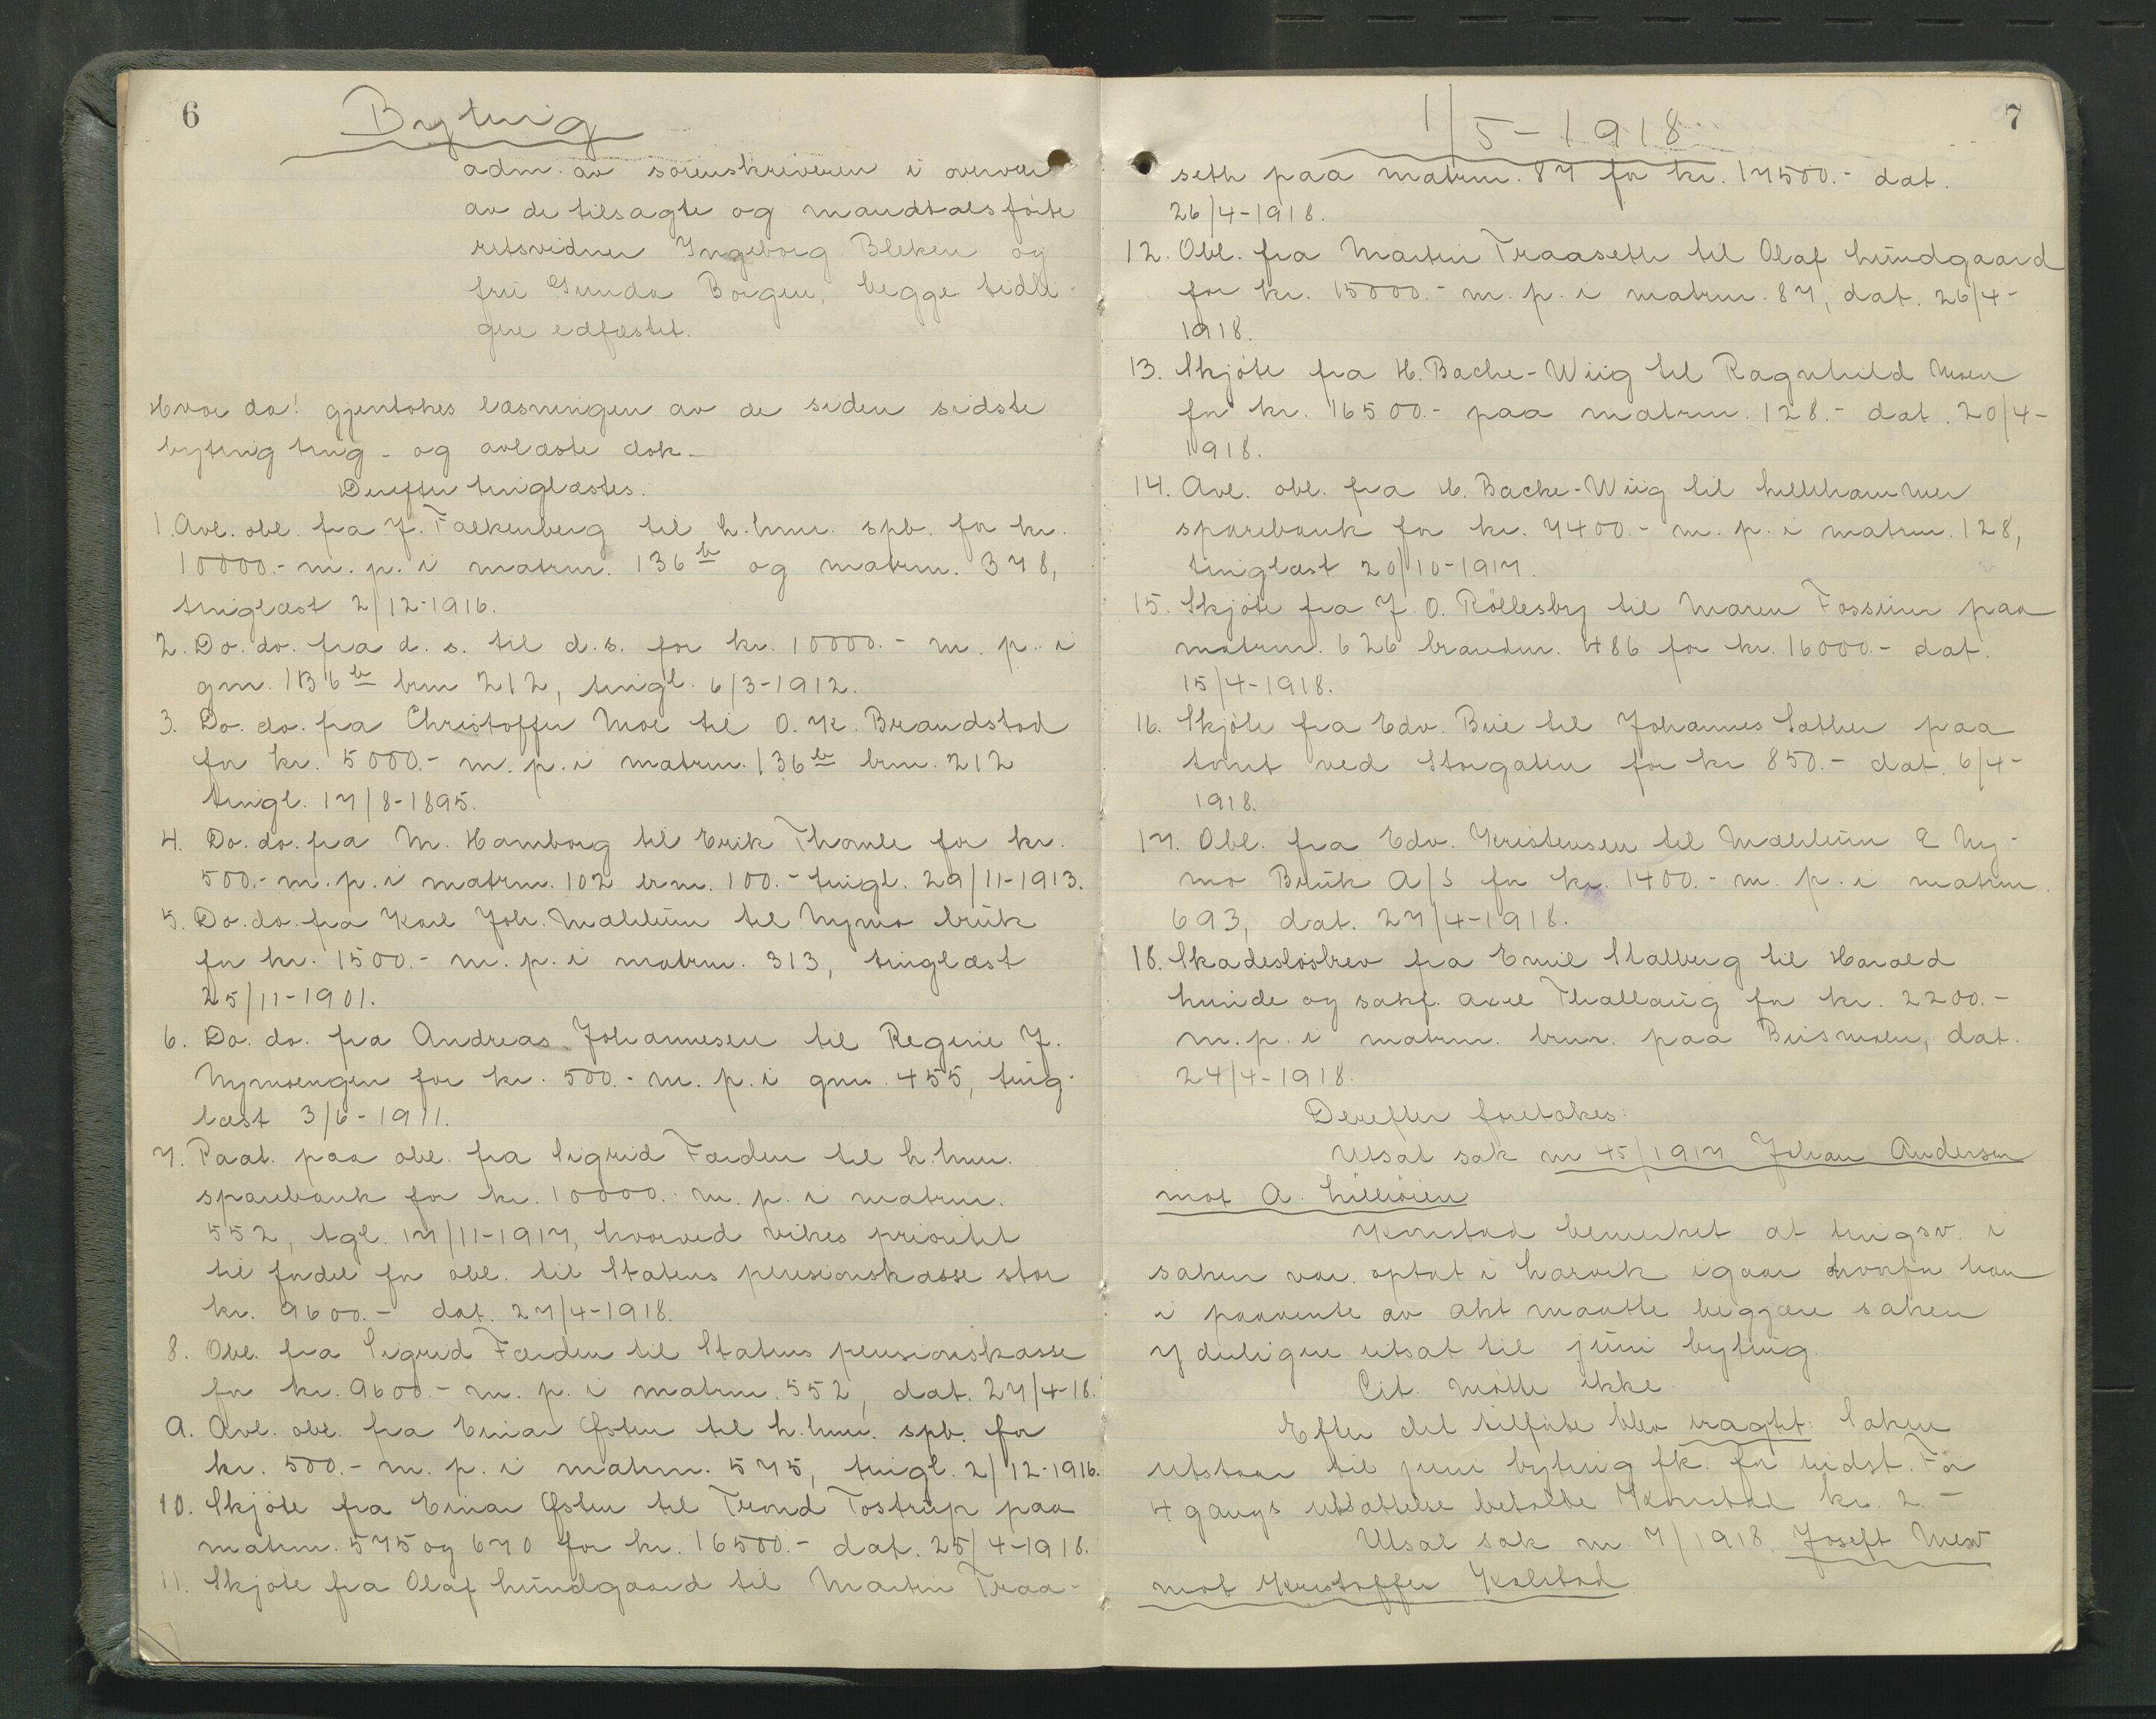 6
Byting
adm. av sorenskriveren i overvær
av de tilsagte og mandtalsførte
retsvidner Ingeborg Bleken og
fru Gunda Borgen, begge tidli-
gere edfæstet.
Hvor da! gjentokes læsningen av de siden sidste
byting ting- og avlæste dok-
Derefter tinglæstes.
1. Avl. obl. fra J. Falkenberg til L.hmr. spb. for kr.
10000.- m. p. i matrnr. 136 b og matrnr. 378,
tinglæst 2/12-1916.
2. Do. do. fra d. s. til d. s. for kr. 10000.- m. p. i
gnr. 136 b brnr 212, tingl. 6/3-1912.
3. Do. do. fra Christoffer Moe til O. K. Brandstad
for kr. 5000.- m. p. i matrnr. 136 b brnr. 212
tingl. 17/8-1895.
4. Do. do. fra M. Hamborg til Erik Thomle for kr.
500.- m. p. i matrnr. 102 brnr. 100.- tingl. 29/11-1913.
5. Do. do. fra Karl Joh. Mæhlum til Nymo bruk
for kr. 1500.- m. p. i matrnr. 313, tinglæst
25/11-1901.
6. Do. do. fra Andreas Johannesen til Regine J.
Nymoengen for kr. 500.- m. p. i gnr. 455, ting-
læst 3/6-1911.
7. Paat. paa obl. fra Sigrid Færden til L.hmr.
sparebank for kr. 10000.- m. p. i matrnr.
552, tgl. 17/11-1917, hvorved vikes prioritet
til fordel for obl. til Statens pensionskasse stor
kr. 9600.- dat. 27/4-1918.
8. Obl. fra Sigrid Færden til Statens pensionskasse
for kr. 9600.- m. p. i matrnr. 552, dat. 27/4-18.
9. Avl. obl. fra Einar Østen til L.hmr. spb. for
kr. 500.- m. p. i matrnr. 575, tingl. 2/12-1916.
10. Skjøte fra Einar Østen til Trond Tostrup paa
matrnr. 575 og 670 for kr. 16500.- dat. 25/4-1918.
11. Skjøte fra Olaf Lundgaard til Martin Traa-
1/5-1918
7
seth paa matrnr. 87 for kr. 17500.- dat.
26/4-1918.
12. Obl. fra Martin Traaseth til Olaf Lundgaard
for kr. 15000.- m. p. i matrnr. 87, dat. 26/4-
1918.
13. Skjøte fra H. Bache-Wiig til Ragnhild Moen
for kr. 16500.- paa matrnr. 128.- dat. 20/4-
1918.
14. Avl. obl. fra H. Bache-Wiig til Lillehammer
sparebank for kr. 7400.- m. p. i matrnr. 128,
tinglæst 20/10-1917.
15. Skjøte fra J. O. Røllesby til Maren Fossum paa
matrnr. 626 brandnr. 486 for kr. 16000.- dat.
15/4-1918.
16. Skjøte fra Edv. Bue til Johannes Sæther paa
tomt ved Storgaten for kr 850.- dat. 6/4-
1918.
17. Obl. fra Edv. Kristensen til Mæhlum & Ny-
mo Bruk A/S for kr. 1400.- m. p. i matrnr.
693, dat. 27/4-1918.
18. Skadesløsbrev fra Emil Stalberg til Harald
Lunde og sakf. Axel Thallaug for kr. 2200.-
m. p. i matrnr. brnr. paa Busmoen, dat.
24/4-1918.
Derefter foretokes:
Utsat sak nr 45/1917 Johan Andersen
mot A. Lilliøien
Konstad bemerket at tingsv. i
saken var optat i Larvik igaar hvorfor han
i paavente av akt maatte begjære saken
yderligere utsat til juni byting.
Cit. møtte ikke.
Efter det tilførte blev eragtet: Saken
utstaar til juni byting fk. for vidst. For
4 gangs utsættelse betalte Konstad kr. 2.-
Utsat sak nr. 7/1918. Joseft Mew
mot Kristoffer Kalstad.